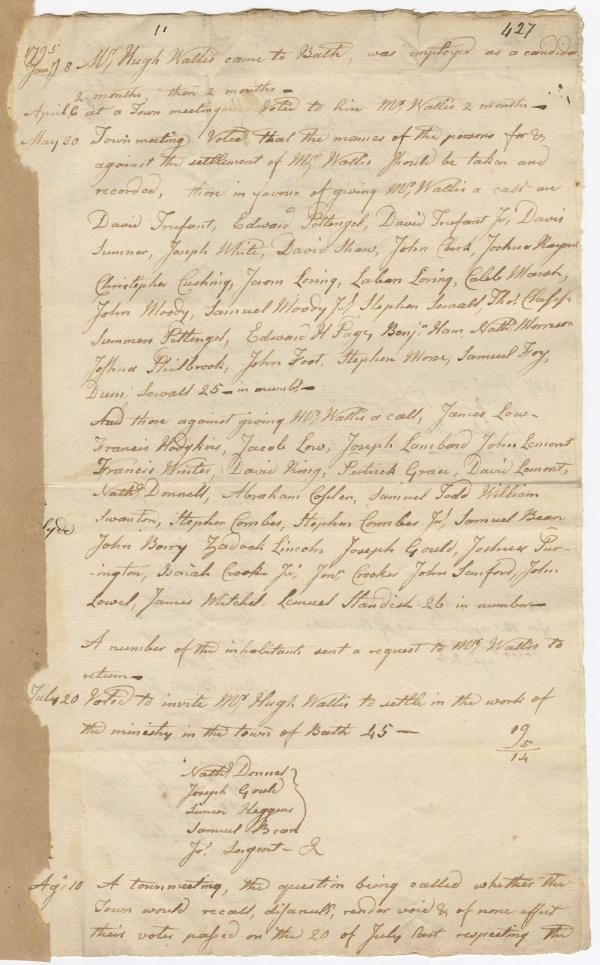 11
427
1795
Jany 8 Mr. Hugh Wallis came to Bath, was employed as a candida
2 months, then 2 months —
April 6 at a Town meeting Voted to hire Mr. Wallis 2 months —
May 20 Town meeting Voted that the names of the persons for &
against the settlement of Mr. Wallis Should be taken and
recorded, those in favour of giving Mr. Wallis a call are
David Trufant, Edward Pettengel, David Trufant Jr, Davis
Sumner, Joseph White, David Shaw, John Clark, Joshua
Christopher Cushing, Jacom Loring, Laban Loring, Caleb Marsh,
John Moody, Samuel Moody Jr, Stephen Sewald, Thos.
Summers Pettengel, Edward H Page, Benjn. Ham, Nathl. Morrison
Joshua Philbrook, John Foot, Stephen Morse, Samuel Foy,
Dum. Sewall 25 — in number —
And those against giving Mr. Wallis a call, James Low —
Francis Hodgkins, Jacob Low, Joseph Lambard John Lemont
Francis Winter, David King, Patrick Grace, David Lemont,
Nathl. Donnell, Abraham Samuel Todd William
Swanton, Stephen Combes, Stephen Combes Jr, Samuel Bean
John Berry Zadoch Lincoln Joseph Gould, Joshua Pur-
-ington, Isaiah Crooker Jr, Jonn. Crooker John Sanford, John
Lowel, James Mitchel, Lemuel Standish 26 in number —
A number of the inhabitants sent a request to Mr. Wallis to
return —
July 20 Voted to invite Mr. Hugh Wallis to settle in the work of
the ministry in the town of Bath 45 —
19
5
14
Nathl. Donnel
Joseph Gould
Simeon Heggens
Samuel Bean
Jos. Sargent — &
Agt 10 A town meeting, the question being called whether the
Town would recall, disanull, render void & of none effect
their votes passed on the 20 of July last respecting the